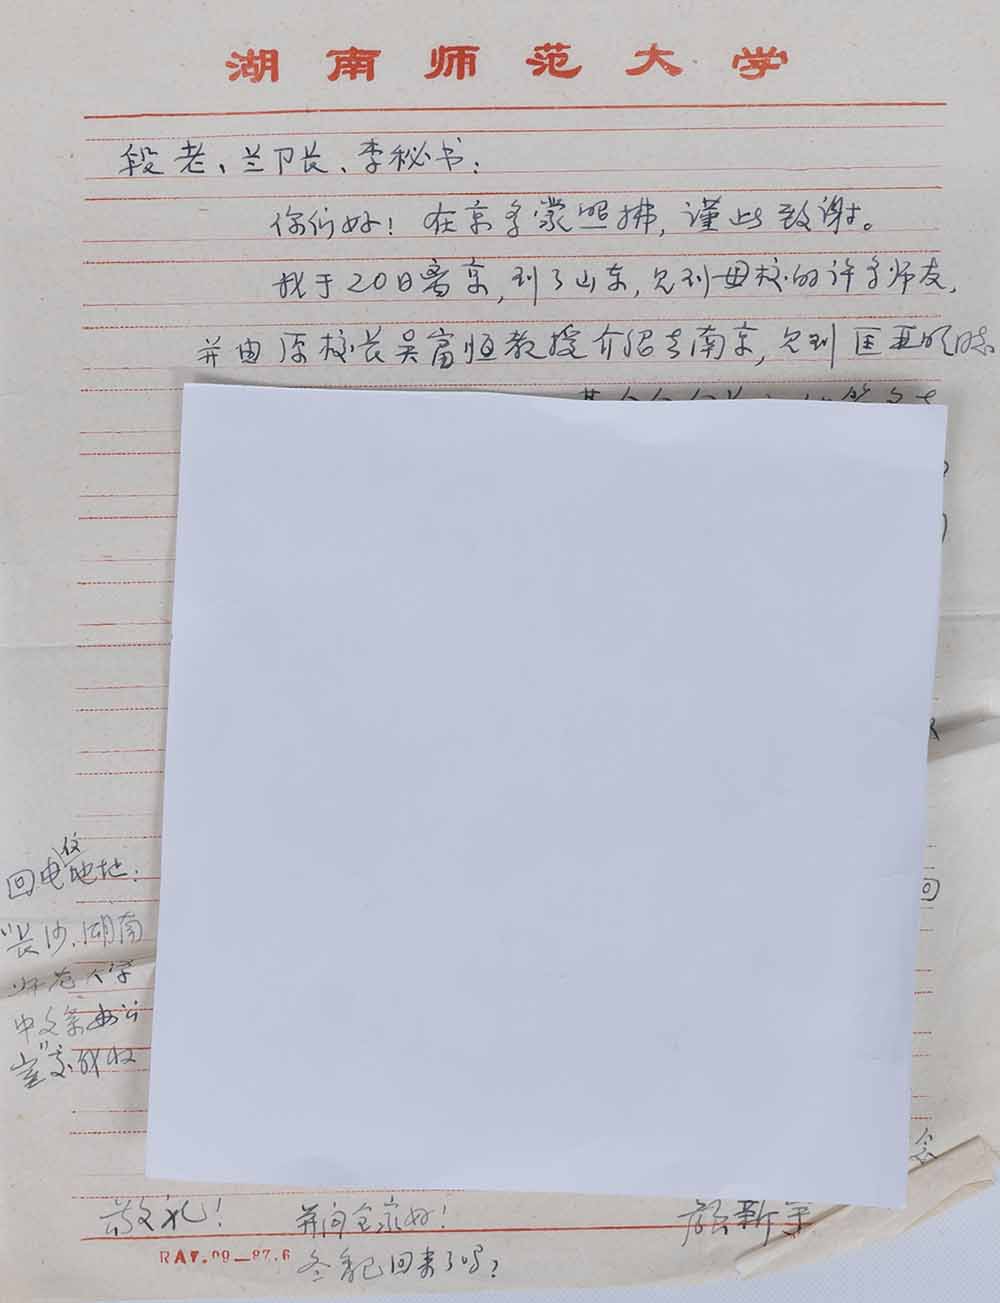 湖南师范大学
段老、兰卫长、李秘书:
你们好！在京多蒙照拂，谨此致谢。
我于20日离京，到了山东，见到母校的许多师友，
并由原校长吴富恒教授介绍去南京，见到匡亚明
回
回电仪地址:
"长沙.湖南
师范大学
中文系办公
室"交我收
敬礼！
并问全家好！
颜新宇
回来了吗?
RAT.09—87.6